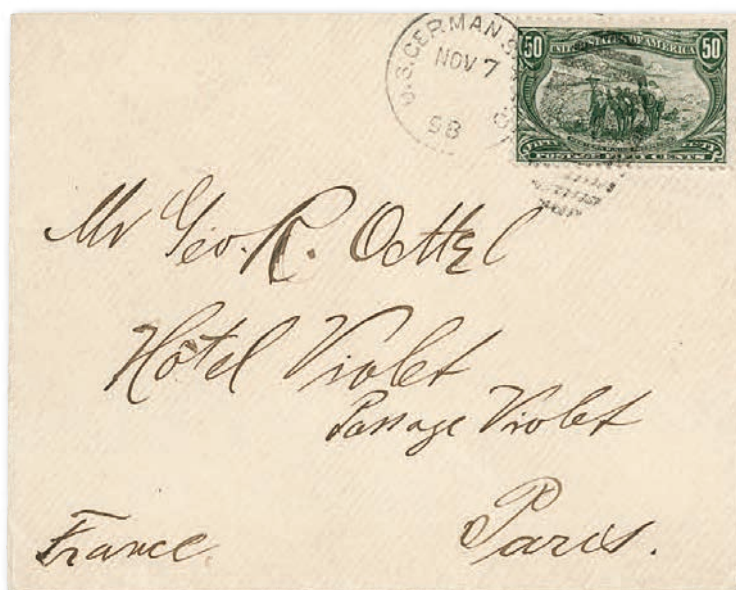 U.S. GERMAN S
NOV 7
98
50 UNITED STATES OF AMERICA 50
POSTAGE FIFTY CENTS
Mr Geo. R. Oettel
Hôtel Violet
Passage Violet
Paris.
France.